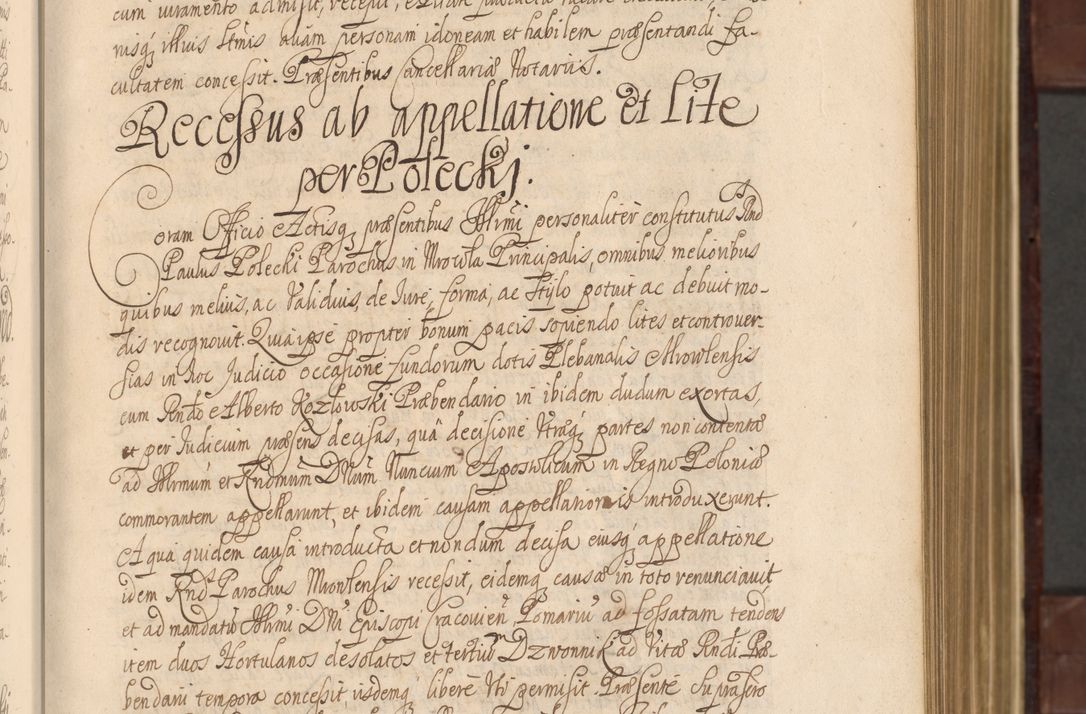 cum iuramento admisit, recepit,
nisq́ illius Ltmis aliam personam idoneam et habilem præsentandi fa-
cultatem concessit. Præsentibus Cancellariæ Notariis.
Recessus ab appellatione et lite
per Polecki.
Coram Officio Actisq́ præsentibus Illrimi personaliter constitutus Rnd
Paulus Polecki Parochus in Mrowla Principalis, omnibus melioribus
quibus melius, ac validius, de Iure, forma, ac stylo potuit ac debuit mo-
dis recognovit. Quia ipse propter bonum pacis sopiendo lites et controver-
sias in hoc Judicio occasione fundorum dotis Plebanalis Mrowlensis
cum Rndo Alberto Kozłowski Præbendario in ibidem dudum exortas,
et per Iudicium præsens decisas, quâ decisione Utraq́ partes non contentæ
ad Illrmum et Rndmum Dnum Nuncium Apostolicum in Regno Poloniæ
commorantem appellarunt, et ibidem causam appellationis introduxerunt.
A qua quidem causa introducta et nondum decisa eiusq́ appellatione
idem Rnds Parochus Mrowlensis recessit, eidemq́ causæ in toto renunciavit
et ad mandatū Illrmi Dni Episcopi Cracovien̄ Pomariū ad fossatam tendens
item duos Hortulanos desolatos et tertium Dzwonnik ad vitæ Rndi Præ-
bendarii tempora concessit, iisdemq́ liberè uti permisit. Præsente